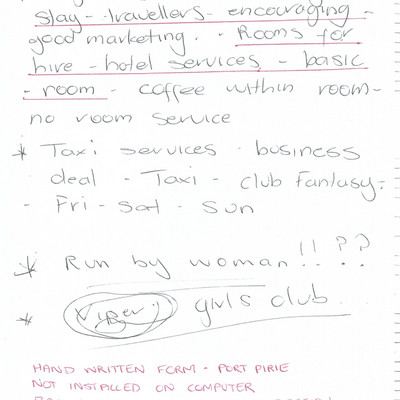 stay - travellers - encouraging -
good marketing. - Rooms for
hire - hotel services - basic
- room - coffee within room -
no room service
* Taxi services - business
deal - Taxi - club Fantasy.
- Fri - Sat - Sun
* Run by woman !! ??
* girls club.
HAND WRITTEN FORM - PORT PIRIE
NOT INSTALLED ON COMPUTER